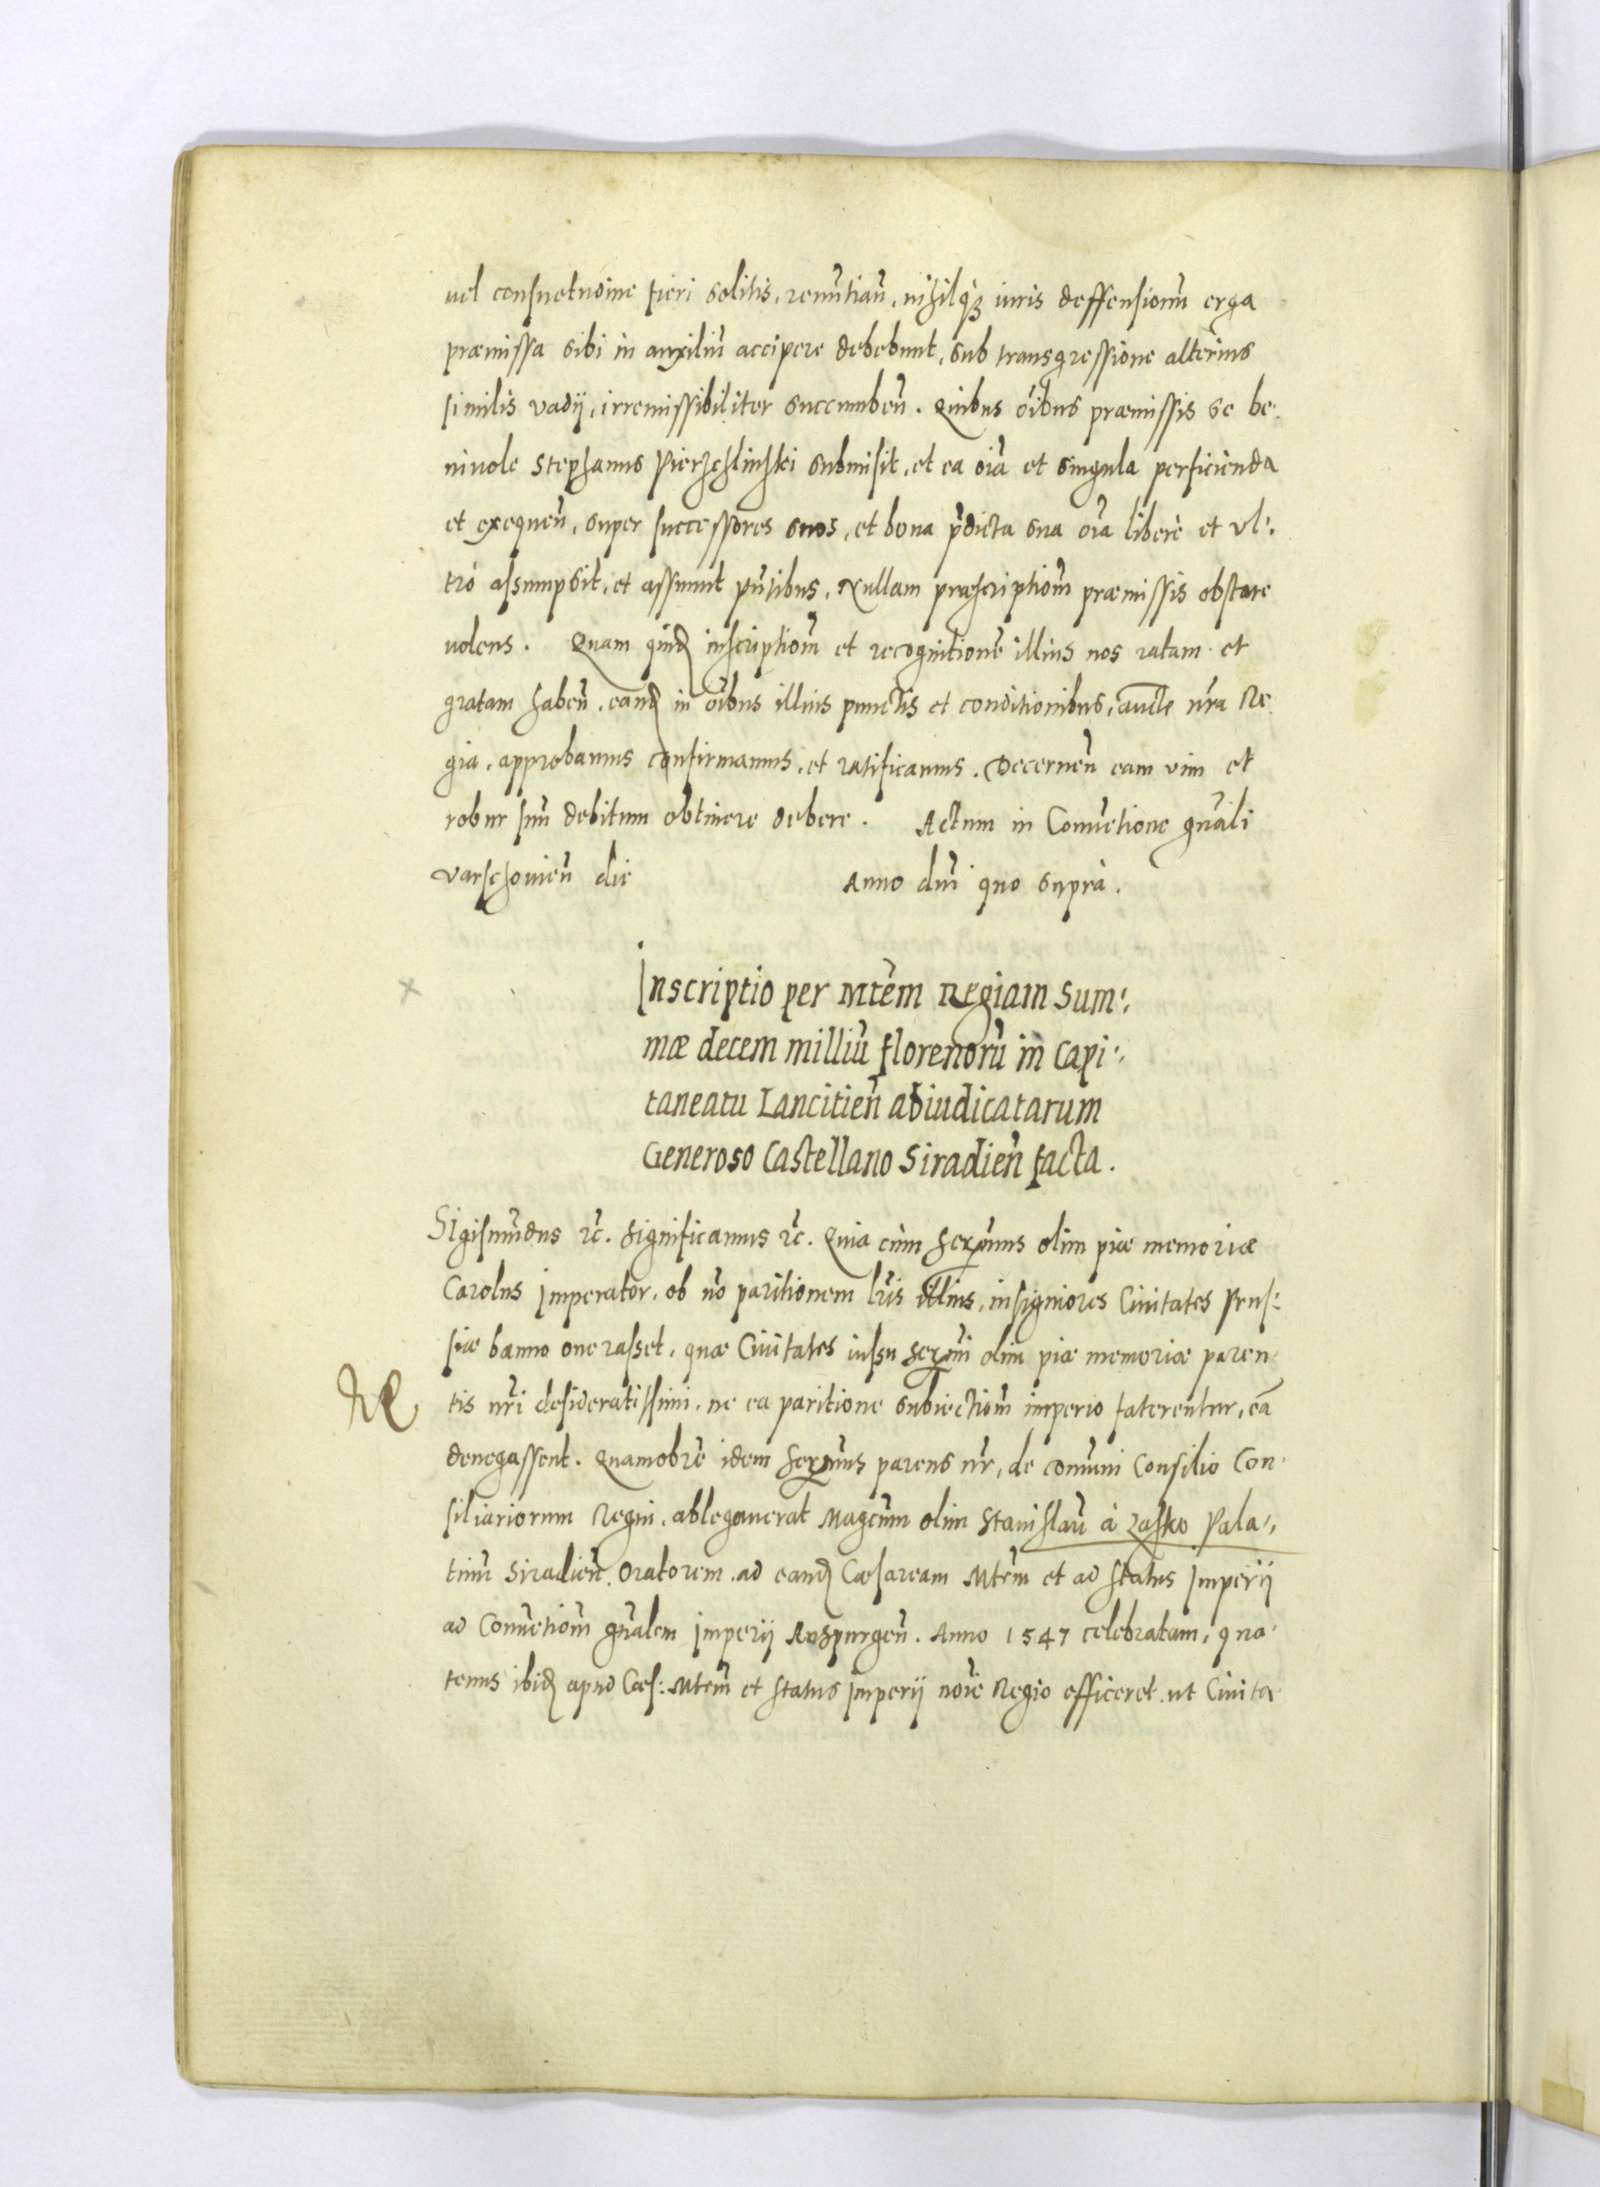 uel consuetudine fieri solitis, renūtiañ, nihilqꝫ iuris deffensionū erga
præmissa sibi in auxiliū accipere debebunt, sub transgressione alterius
similis vadij, irremissibiliter succumbeñ. Quibus oībus præmissis se be⸗
niuole Stephanus Pierzchlinski submisit, et ea oīa et singula perficienda
et exequeñ, super successores suos, et bona p̄dicta sua oīa liberè et vl⸗
trò assumpsit, et assumit pn̄tibus, Nullam præscriptioñ præmissis obstare
uolens. Quam quid̄ inscriptioñ et recognitionē illius nos ratam et
gratam habeñ, eand̄ in oībus illius punctis et conditionibus, aucte nr̄a Re
gia, approbamus confirmamus, et ratificamus. Decerneñ eam vim et
robur suū debitum obtinere debere. Actum in Conuētione gn̄ali
Varschouieñ die Anno dn̄i quo suprà.
Inscriptio per Mtēm Regiam Sum⸗
mæ decem milliū florenorū in Capi⸗
taneatu Lancitieñ abiudicatarum
Generoso Castellano Siradieñ facta.
Sigismūdus rc̄. Significamus rc̄. Quia cùm Serm̄us olim piæ memoriæ
Carolus Imperator, ob nō paritionem lr̄is illius, insigniores Ciuitates Prus⸗
siæ banno onerasset, quæ Ciuitates iussu Serm̄i olim piæ memoriæ paren
tis nr̄i desideratissimi, ne ea paritione subiectioñ imperio faterentur, eā
denegassent. Quamobrē idem Serm̄us parens nr̄, de comūni Consilio Con⸗
siliariorum Regni, ablegauerat Magcum olim Stanislaū à Łasko Pala⸗
tinū Siradieñ Oratorem ad eand̄ Cæsaream Mtēm et ad Status Imperij
ad Conuētioñ gn̄alem Imperij Auspurgeñ. Anno 1547 celebratam, qua⸗
tenus ibid̄ apud Cæs: Mtēm et Status Imperij noīe Regio efficeret ut Ciuita